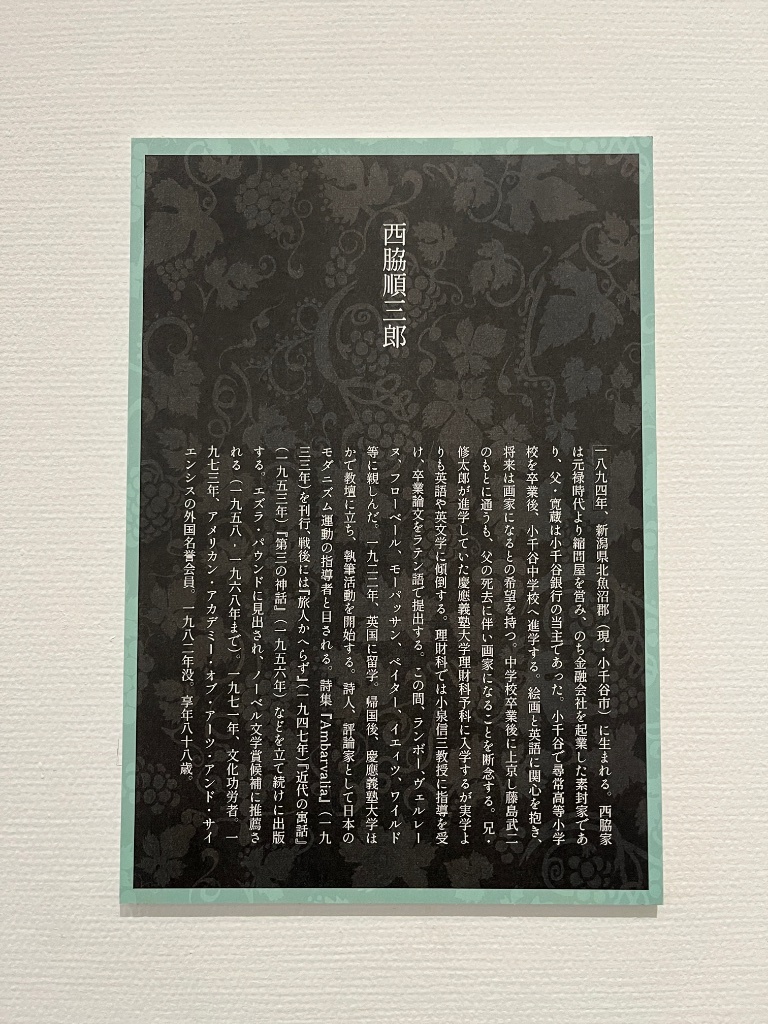 西脇順三郎
一八九四年、新潟県北魚沼郡（現・小千谷市）に生まれる。西脇家
は元禄時代より縮問屋を営み、のち金融会社を起業した素封家であ
り、父・寛蔵は小千谷銀行の当主であった。小千谷で尋常高等小学
校を卒業後、小千谷中学校へ進学する。絵画と英語に関心を抱き、
将来は画家になるとの希望を持つ。中学校卒業後に上京し藤島武二
のもとに通うも、父の死去に伴い画家になることを断念する。兄・
修太郎が進学していた慶應義塾大学理財科予科に入学するが実学よ
りも英語や英文学に傾倒する。理財科では小泉信三教授に指導を受
け、卒業論文をラテン語で提出する。この間、ランボー、ヴェルレー
ヌ、フローベール、モーパッサン、ペイター、イエィツ、ワイルド
等に親しんだ。一九二二年、英国に留学。帰国後、慶應義塾大学ほ
かで教壇に立ち、執筆活動を開始する。詩人、評論家として日本の
モダニズム運動の指導者と目される。詩集『Ambarvalia』（一九
三三年）を刊行、戦後には『旅人かへらず』（一九四七年）『近代の寓話』
（一九五三年）『第三の神話』（一九五六年）などを立て続けに出版
する。エズラ・パウンドに見出され、ノーベル文学賞候補に推薦さ
れる（一九五八・一九六八年まで）。一九七一年、文化功労者。一
九七三年、アメリカン・アカデミー・オブ・アーツ・アンド・サイ
エンシスの外国名誉会員。一九八二年没。享年八十八歳。